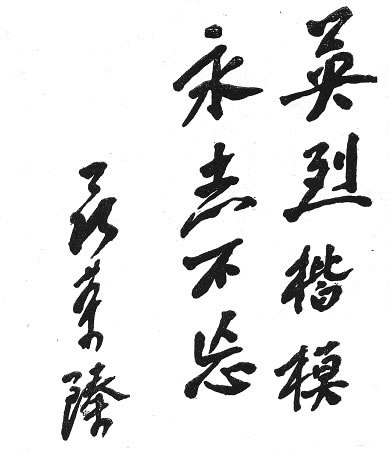 英烈楷模
永志不忘
聂荣臻